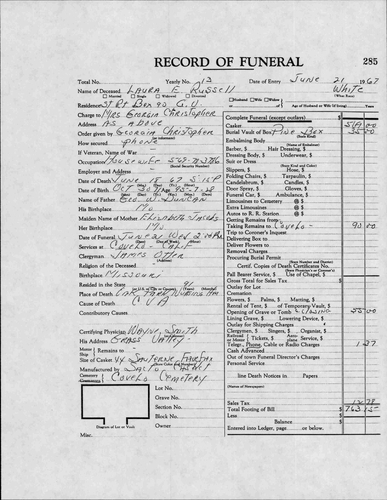 RECORD OF FUNERAL 285
Total No. Yearly No. 13 Date of Entry June 21, 1967
Name of Deceased Laura E Russell White
Married Single Widowed Divorced (What Race)
Husband Wife Widow of Age of Husband or Wife (if living) Years
Residence St Rt Box 90 G.V.
Charge to Mrs Georgia Christopher
Address As Above
Order given by Georgia Christopher
How secured phone
If Veteran, Name of War
Occupation Housewife
(Social Security Number)
Employer and Address
Date of Death June 18 67 5:15 P
Date of Birth Oct 30
Name of Father Geo W. Duncan
His Birthplace Mo
Maiden Name of Mother Elizabeth Jacobs
Her Birthplace Mo
Date of Funeral Wed 2:00 PM
Services at Covelo - Calif
Clergyman James Otter
Religion of the Deceased
Birthplace Missouri
Resided in the State
Place of Death
Cause of Death CVA
Contributory Causes
Certifying Physician Wayne Smith
His Address Grass Valley
Motor Ship Remains to
Size of Casket
Manufactured by Sacto Casket
Cemetery Crematory Covelo Cemetery
Lot No.
Grave No.
Section No.
Block No.
Owner
Diagram of Lot or Vault
Misc.
Complete Funeral (except outlays) $
Casket 519 00
Burial Vault or Box Pine Box 35 00
(State Kind)
Embalming Body
(Name of Embalmer)
Barber, $ Hair Dressing, $
Dressing Body, $ Underwear, $
Suit or Dress
(State Kind and Color)
Slippers, $ Hose, $
Folding Chairs, $ Tarpaulin, $
Candelabrum, $ Candles, $
Door Spray, $ Gloves, $
Funeral Car, $ Ambulance, $
Limousines to Cemetery @ $
Extra Limousines @ $
Autos to R. R. Station @ $
Getting Remains from
Taking Remains to Covelo - 90 00
Trip to Coroner's Inquest
Delivering Box to
Deliver Remains to
Removal Charges
Procuring Burial Permit
(State Number and District)
Certif. Copies of Death Certificates No.
(State Physician's or Coroner's)
Pall Bearer Service, $ Use of Chapel, $
Gross Total for Sales Tax $
Outlay for Lot
Cremation
Flowers, $ Palms, $ Manting, $
Rental of Tent, $ of Temporary Vault, $
Opening of Grave or Tomb Closing 55 00
Lining Grave, $ Lowering Device, $
Outlay for Shipping Charges
Clergymen, $ Singers, $ Organist, $
Tickets, $ Service, $
Telegr., Phone, Cable or Radio Charges 1 27
Cash Advanced
Out of town Funeral Director's Charges
Personal Service
line Death Notices in Papers
(Names of Newspapers)
Sales Tax 12 78
Total Footing of Bill $
Less $
Balance $
Entered into Ledger, page or below.